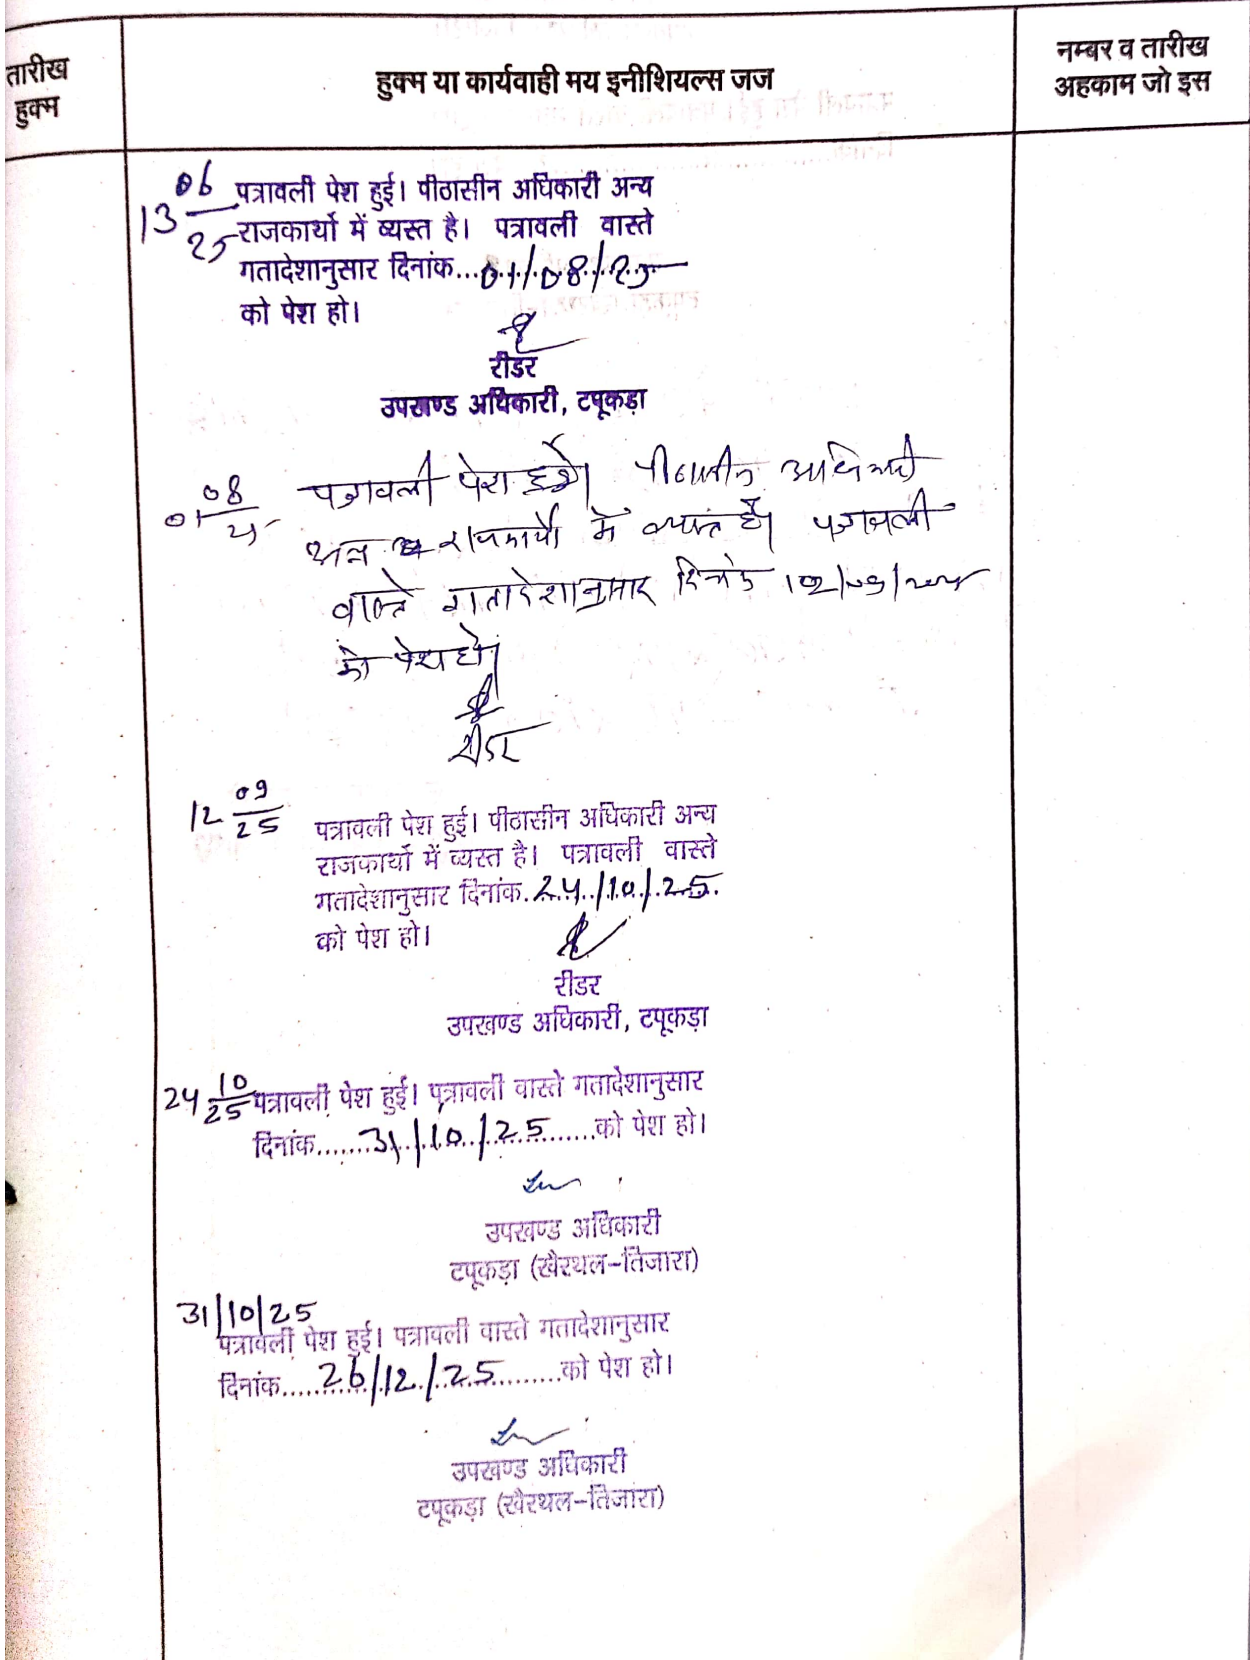 तारीख
हुक्म
हुक्म या कार्यवाही मय इनीशियल्स जज
नम्बर व तारीख
अहकाम जो इस
13 06/25
पत्रावली पेश हुई। पीठासीन अधिकारी अन्य
राजकार्यो में व्यस्त है। पत्रावली वास्ते
गतादेशानुसार दिनांक...01/08/25
को पेश हो।
रीडर
उपखण्ड अधिकारी, टपूकड़ा
01 08/25
पत्रावली पेश हुई। पीठासीन अधिकारी
अन्य राजकार्यो में व्यस्त है। पत्रावली
वास्ते गतादेशानुसार दिनांक 12/09/2025
को पेश हो।
रीडर
12 09/25
पत्रावली पेश हुई। पीठासीन अधिकारी अन्य
राजकार्यो में व्यस्त है। पत्रावली वास्ते
गतादेशानुसार दिनांक.24/10/25.
को पेश हो।
रीडर
उपखण्ड अधिकारी, टपूकड़ा
24 10/25
पत्रावली पेश हुई। पत्रावली वास्ते गतादेशानुसार
दिनांक.......31/10/25.......को पेश हो।
उपखण्ड अधिकारी
टपूकड़ा (खैरथल-तिजारा)
31/10/25
पत्रावली पेश हुई। पत्रावली वास्ते गतादेशानुसार
दिनांक.....26/12/25.......को पेश हो।
उपखण्ड अधिकारी
टपूकड़ा (खैरथल-तिजारा)